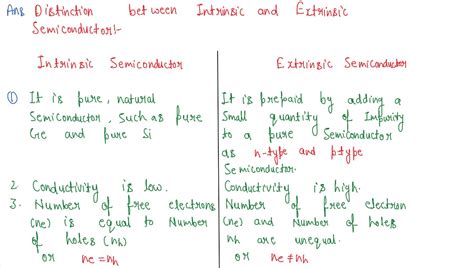 Ans Distinction between Intrinsic and Extrinsic
Semiconductor:-
Intrinsic Semiconductor
① It is pure, natural
Semiconductor, Such as pure
Ge and pure Si
2 Conductivity is low.
3. Number of free electrons
(ne) is equal to Number
of holes (nh)
or ne = nh
Extrinsic Semiconductor
It is prepaid by adding a
Small quantity of Impurity
to a pure Semiconductor
as n-type and p type
Semiconductor.
Conductivity is high.
Number of free electron
(ne) and Number of holes
nh are unequal.
or ne ≠ nh